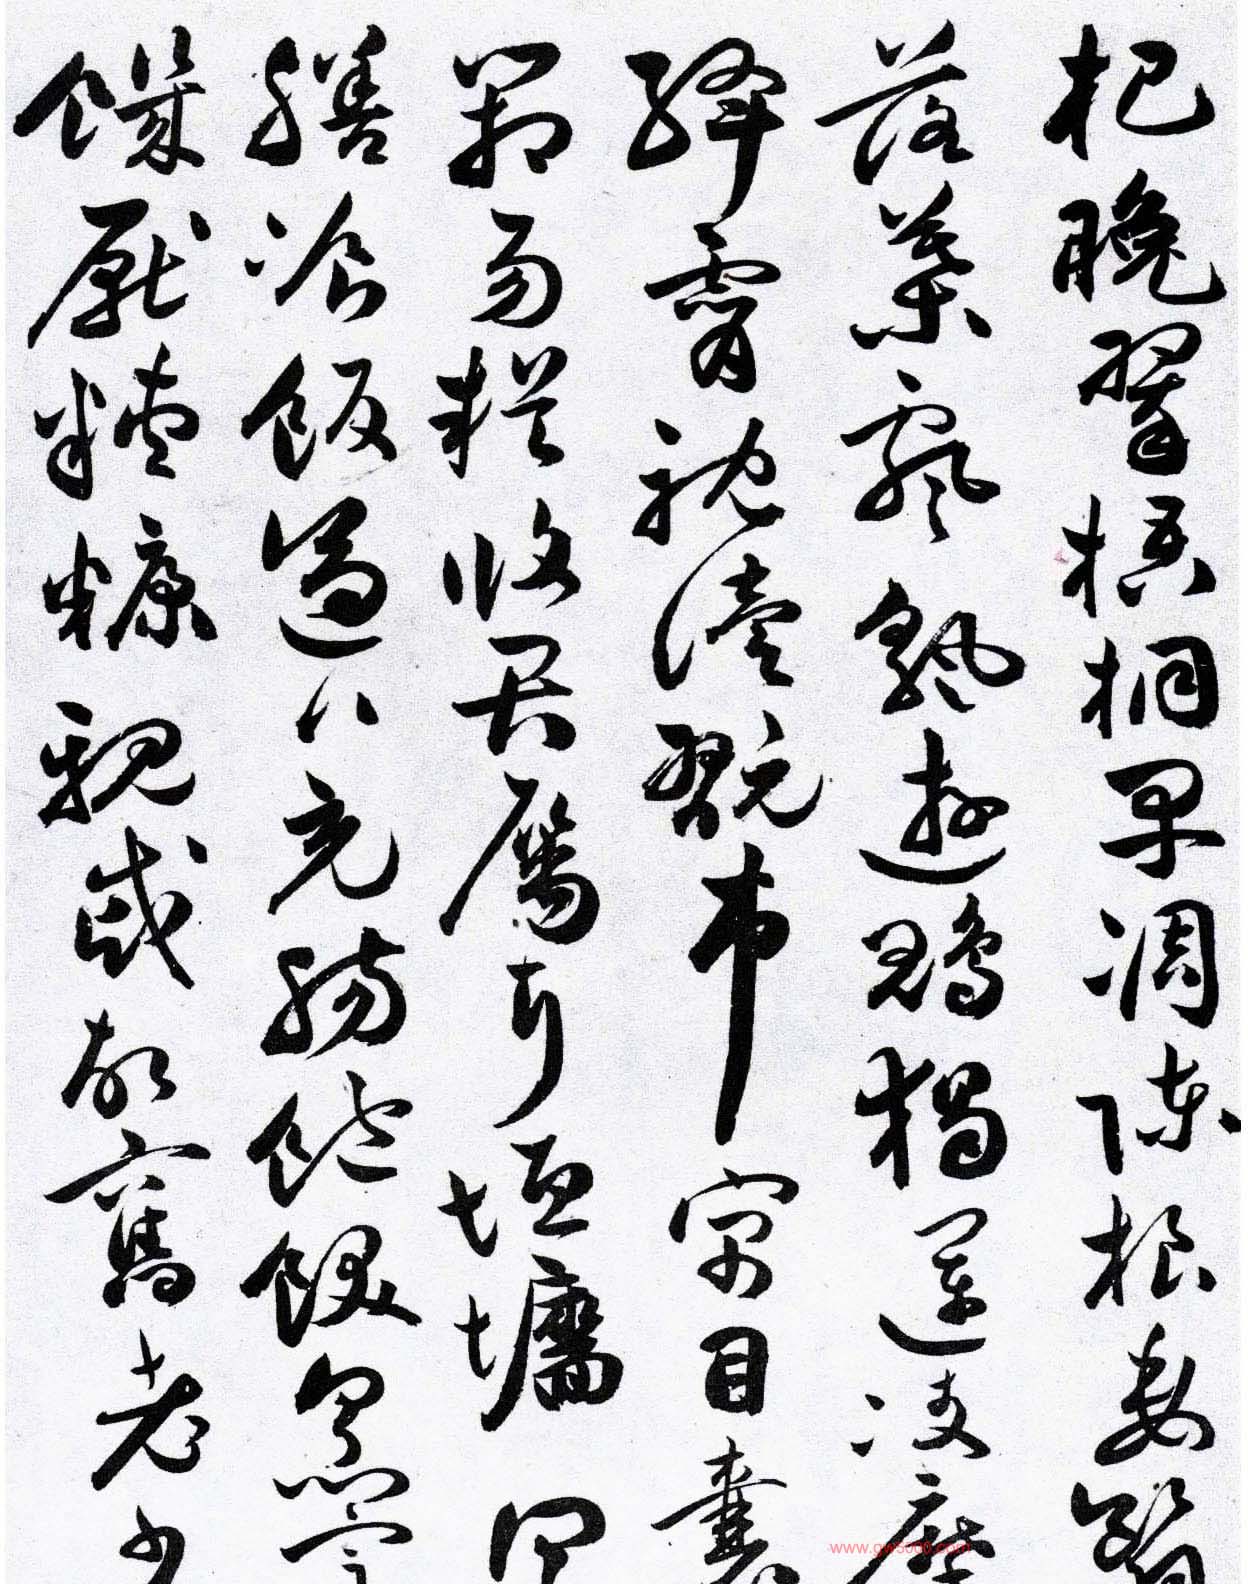 杷晚翠梧桐早凋陈根委翳
落叶飘飖游鹍独运凌摩
绛霄耽读玩市寓目囊
箱易輶攸畏属耳垣墙
膳飡饭适口充肠饱饫烹宰
饥厌糟糠亲戚故旧老少
www.gw5000.com